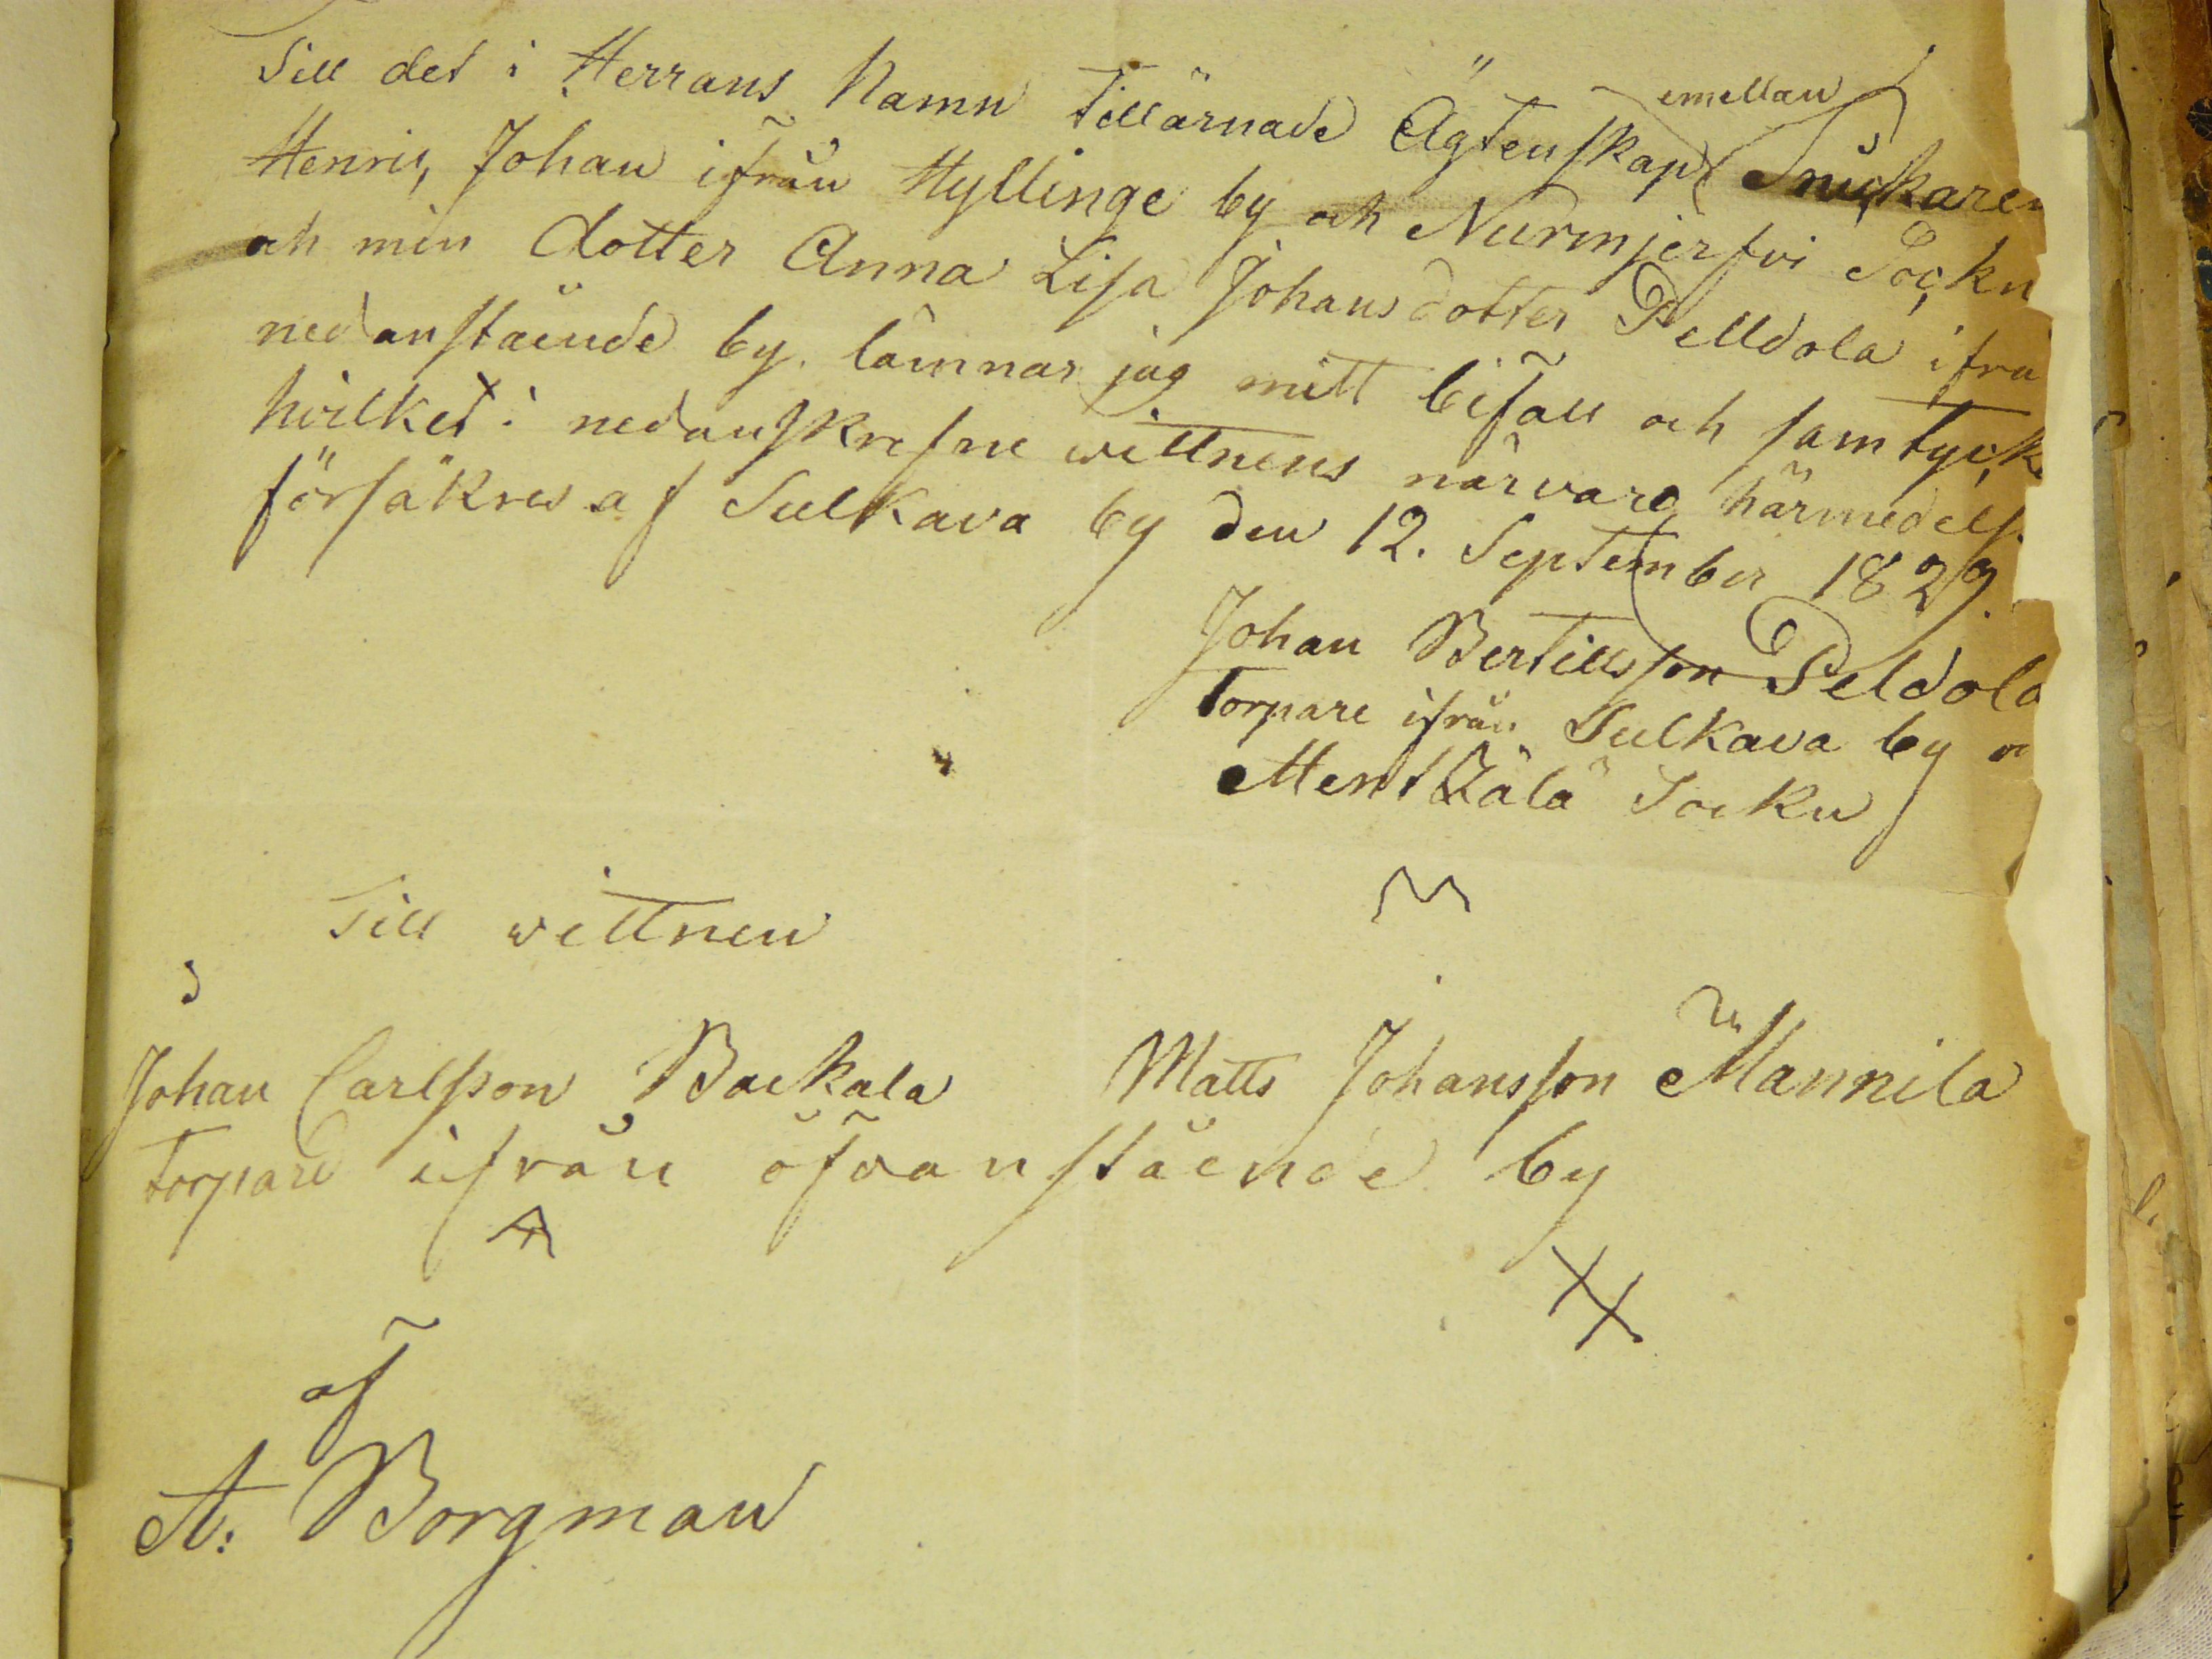 Till det i Herrans Namn tillärnade Ägtenskap emellan Snickaren
Henric Johan ifrån Hyllinge by och Nurmjerfvi Sockn
och min dotter Anna Lisa Johansdotter Pelldola ifrå
nedanstäende by. lämnar jag mitt bifall och samtyck
hvilket i nedanskrefne wittnens närvaro härmedels
försäkres af Sulkava by den 12. September 1829.
Johan Bertillsson Peldola
Torpare ifrån Sulkava by
Mentzälä Sockn
Till wittnen
Johan Carlsson Backala Matts Johansson Mannila
Torpare ifrån öfvanstäende by
af
A: Borgman